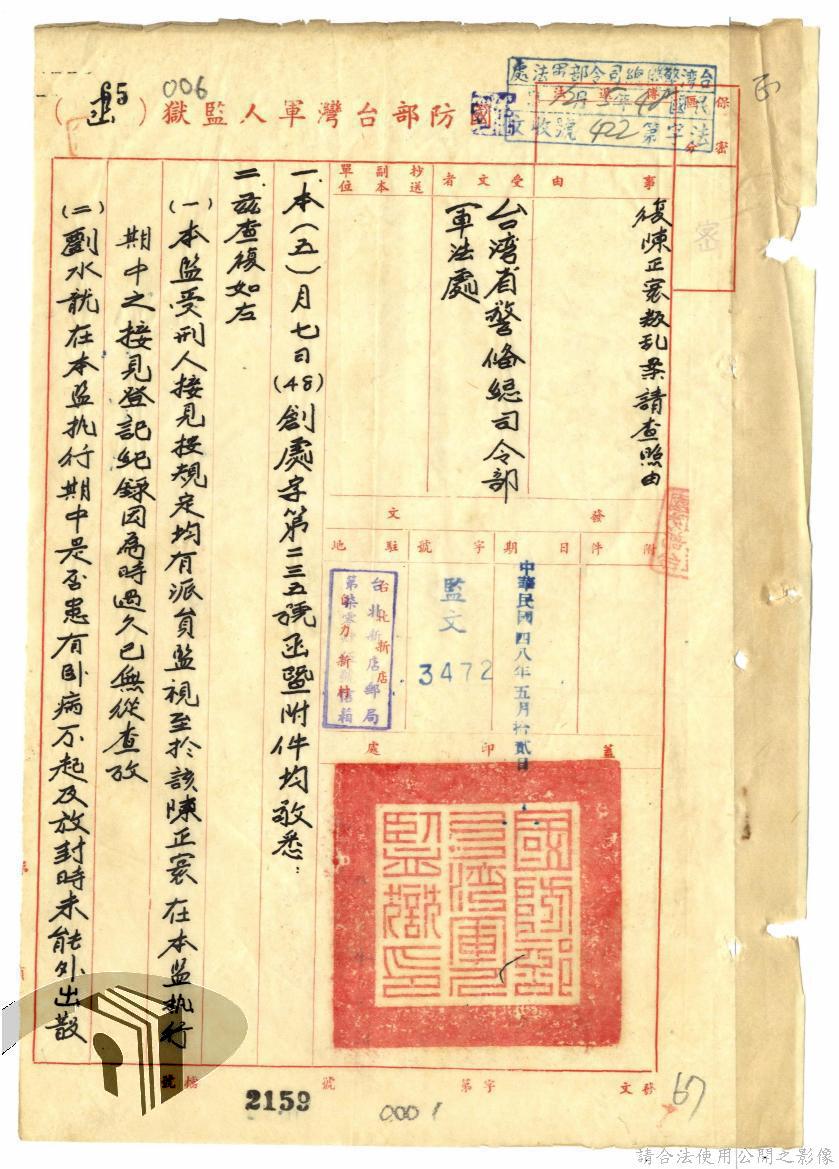 006
65
國防部台灣軍人監獄（函）
台灣警備總司令部軍法處
法字第422號收文
保密
區分
密
事由
復陳正宸叛乱案請查照由
受文者
台湾省警俻總司令部
軍法處
抄送副本單位
發文
附件
日期
中華民國四八年五月拾貳日
字號
監文
3472
駐地
台北新店郵局
蓋印處
國防部台灣軍人監獄印
一、本(五)月七日(48)創處字第二三五號函暨附件均敬悉：
二、茲查復如左
(一)本監受刑人接見按規定均有派員監視至於該陳正宸在本監執行
期中之接見登記紀錄因為時過久已無從查攷
(二)劉水龍在本監执行期中是否患有卧病不起及放封時未能外出散
檔號
2159
字第號
0001
務文
67
請合法使用公開之影像